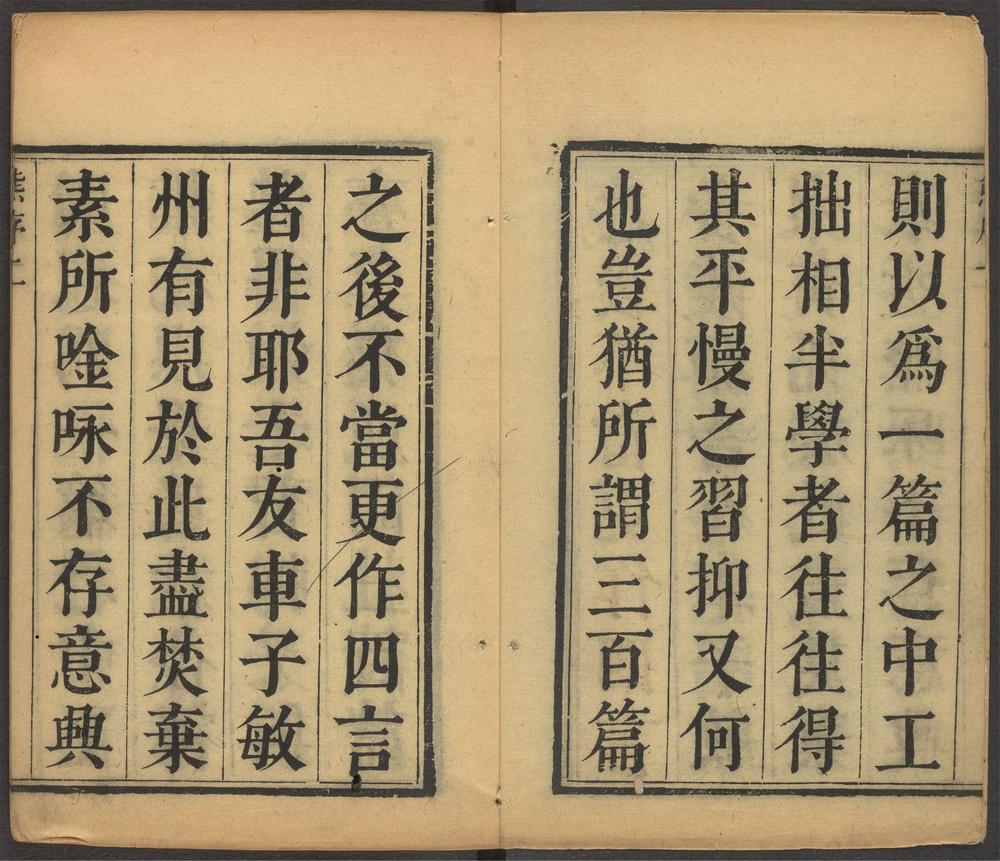 則以爲一篇之中工
拙相半學者往往得
其平慢之習抑又何
也豈猶所謂三百篇
之後不當更作四言
者非耶吾友車子敏
州有見於此盡焚棄
素所唫咏不存意興